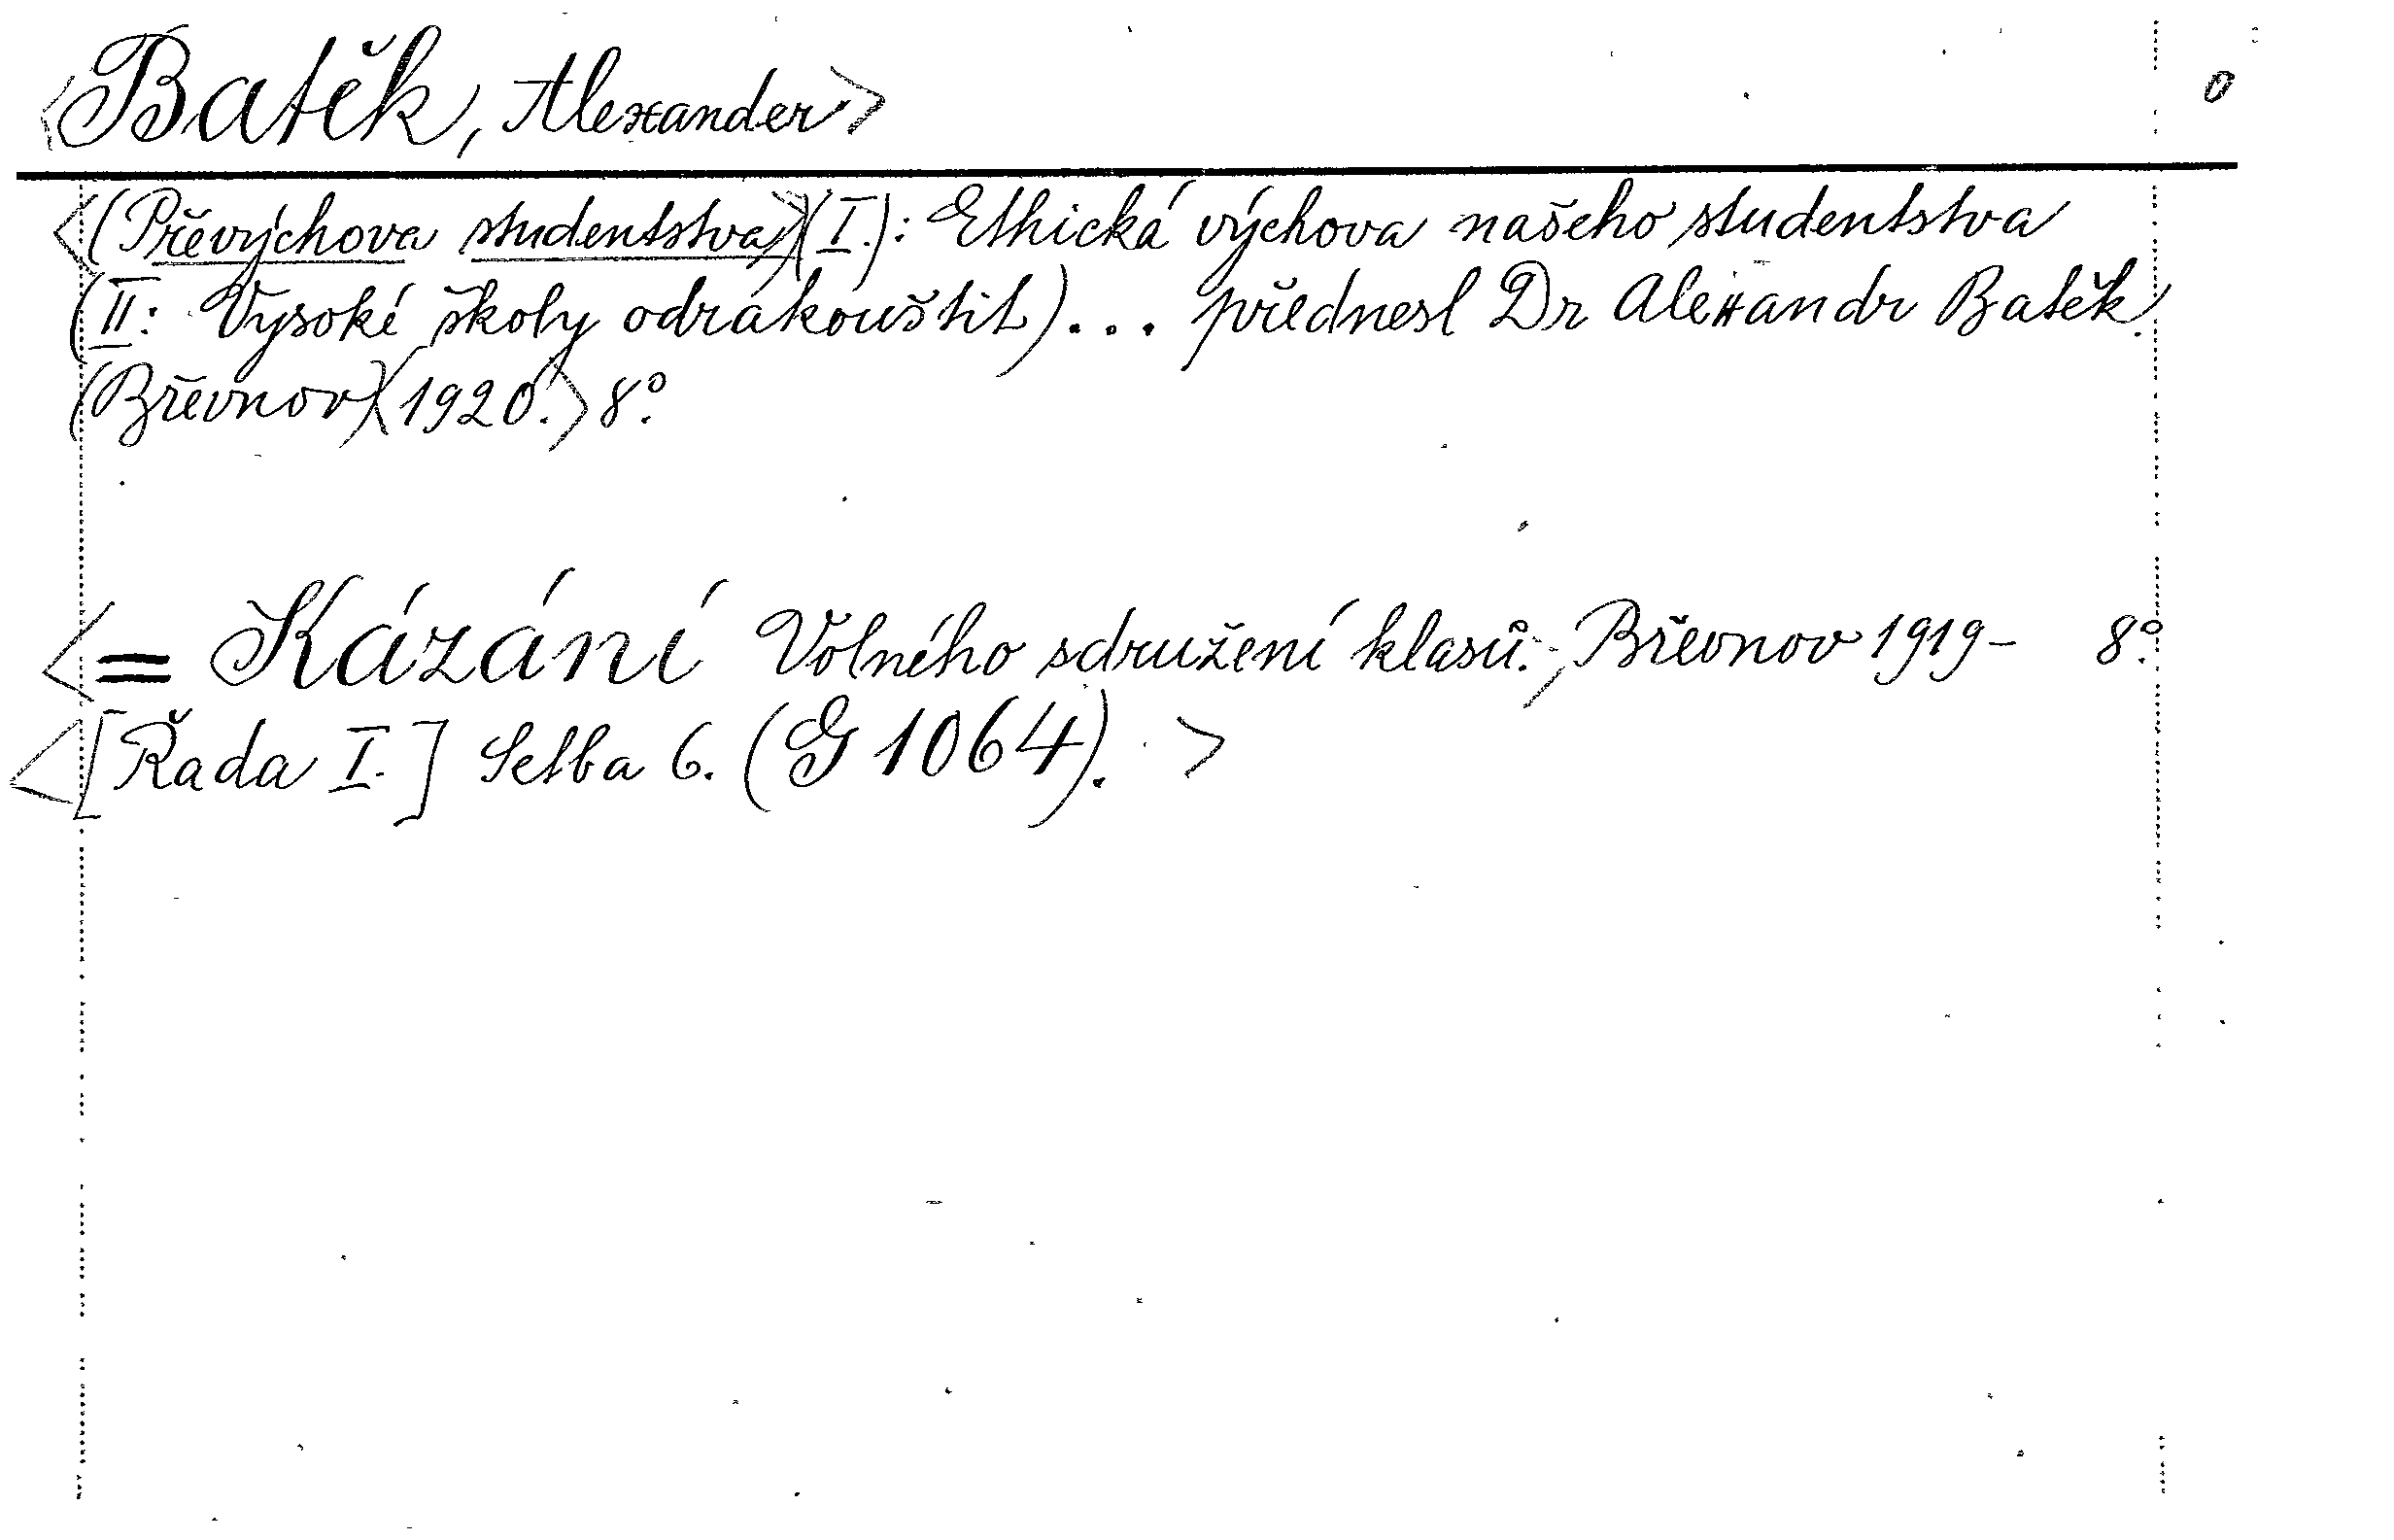 <Batěk, Alexander>
0
<(Převýchova studentstva)>(I.): Ethická výchova našeho studentstva
(II: Vysoké školy odrakouštit)... přednesl Dr Alexandr Batěk.
(Břevnov)<1920.> 8º.
<= Kázání Volného sdružení klasů., Břevnov 1919- 8º.
<[Řada I.] Setba 6. (G 1064). >